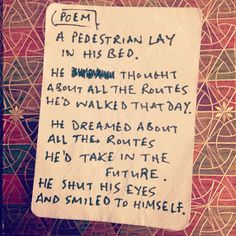 (POEM)
A PEDESTRIAN LAY
IN HIS BED.
HE THOUGHT
ABOUT ALL THE ROUTES
HE'D WALKED THAT DAY.
HE DREAMED ABOUT
ALL THE ROUTES
HE'D TAKE IN THE
FUTURE.
HE SHUT HIS EYES
AND SMILED TO HIMSELF.